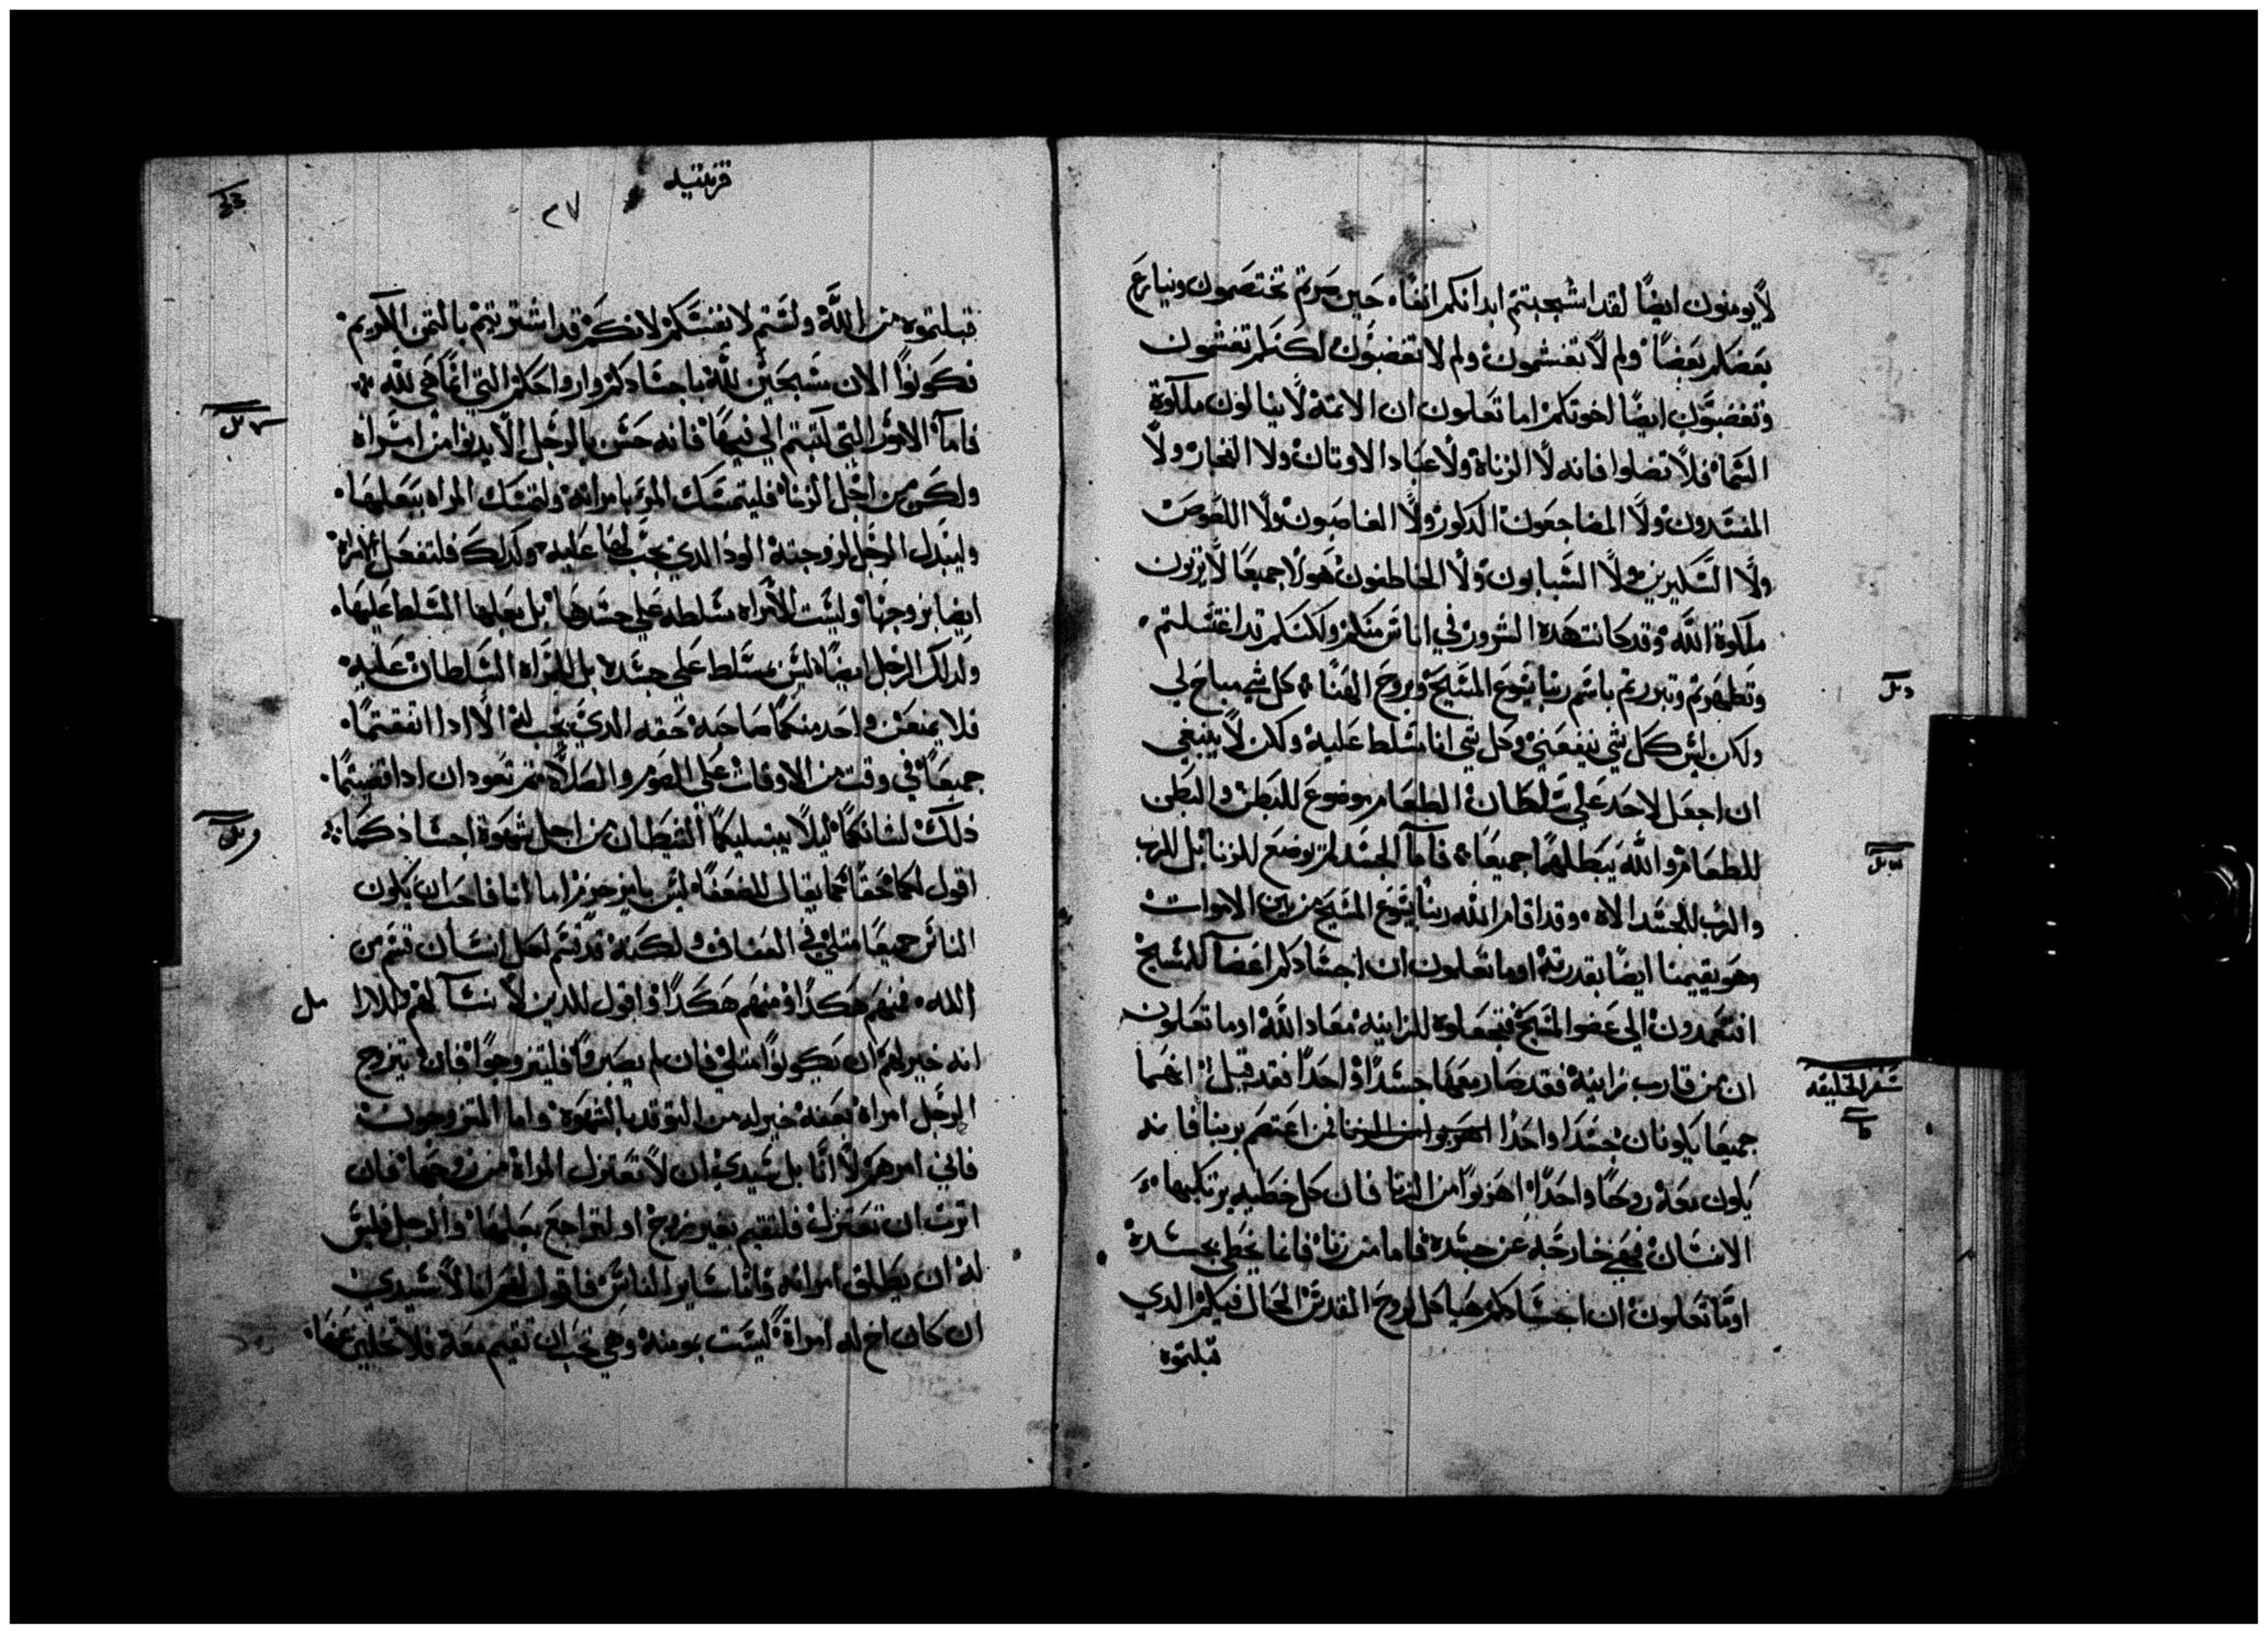 لايومنون ايضًا لقد اشجبتم ابدانكم انفا، حين صرتم تختصمون وينازع
بعضكم بعضًا ولم لا تغشمون ولم لا تغضبون لكنكم تغشمون
وتغضبون ايضًا اخوتكم اما تعلمون ان الاثمة لا ينالون ملكوة
السما فلا تضلوا فانه لا الزناة ولا عباد الاوتان ولا الفجار ولا
المفسدون ولا المضاجعون الدكور ولا الغاصبون ولا اللصوص
ولا السكيرين ولا السبابون ولا الخاطفون هولا جميعًا لا يرتون
ملكوة الله وقد كانت هده الشرور في اناس منكم ولكنكم قد اغتسلتم
وتطهرتم وتبررتم باسم ربنا يسوع المسيح وبروح الهنا كل شي مباح لي
ولكن ليس كل شي ينفعني وكل شي انا مسلط عليه ولكن لا ينبغي
ان اجعل لاحد علي سلطان الطعام موضوع للبطن والبطن
للطعام والله يبطلهما جميعا فاما الجسد لم يوضع للزنا بل للرب
والرب للجسد الاه وقد اقام الله ربنا يسوع المسيح من بين الاموات
وهو يقيمنا ايضًا بقدرته اوما تعلمون ان اجسادكم اعضآ للمسيح
افتعمدون الي عضو المسيح فتجعلوه للزانيه معاد الله اوما تعلمون
ان من قارب زانية فقد صار معها جسدًا واحدًا فقد قيل انهما
سفر الخليقه
جميعا يكونان جسدا واحدا اهربوا من الزنا فمن اعتصم بربنا فانه
يكون معه روحًا واحدًا اهربوا من الزنا فان كل خطيه يرتكبها
الانسان فهي خارجه عن جسده فاما من زنا فانما يخطي بجسده
اوما تعلمون ان اجسادكم هياكل لروح القدس الحال فيكم الدي
قبلتموه
قرنتيه
٢٧
قبلتموه من الله ولستم لانفسكم لانكم قد اشتريتم بالتمن الكريم
فكونوا الان مسبحين لله باجسادكم وارواحكم التي انما هي لله
فاما الامور التي كتبتم الي فيها فانه حسن بالرجل الا يدنوا من امراه
ولكن من اجل الزنا فليتمسك المرء بامراته ولتمسك المراه ببعلها
وليبدل الرجل لزوجته الود الدي يجب لها عليه وكدلك فلتفعل المراة
ايضا بزوجها وليست المراه مسلطه علي جسدها بل بعلها المسلط عليها
ولدلك الرجل ايضًا ليس مسلط علي جسده بل للمراه السلطان عليه
فلا يمنعن واحد منكما صاحبه حقه الدي يجب له الا ادا اتفقتما
جميعًا في وقت من الاوقات علي الصوم والصلاة تم تعودان ادا قضيتما
ذلك لشانكما ليلا يبتليكما الشيطان من اجل شهوة اجسادكما
اقول لكما حقا كما يقال للضعفا ليس بامر جزم اما انا فاحب ان يكون
الناس جميعًا متلي في العفاف ولكنه قد قسم لكل انسان قسم من
الله فمنهم هكدا ومنهم هكدا واقول للدين لا نسآ لهم
انه خير لهم ان يكونوا متلي فان لم يصبروا فليتزوجوا فان تيزوج
الرجل امراة تعفه خير له من التوقد بالشهوة واما المتزوجون
فاني امرهم لا انا بل سيدي ان لا تعتزل المراة من زوجها فان
اترت ان تعتزل فلتقيم بغير زوج او لتراجع بعلها والرجل فليس
له ان يطلق امراته فاما ساير الناس فاقول لهم انا لا سيدي
ان كان اخ له امراة ليست بمومنه وهي تحب ان تقيم معه فلا تخلين عنها